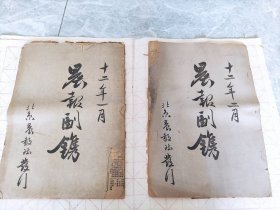 十二年一月
晨報副鐫
北京晨報社發行
十二年二月
晨報副鐫
北京晨報社發行